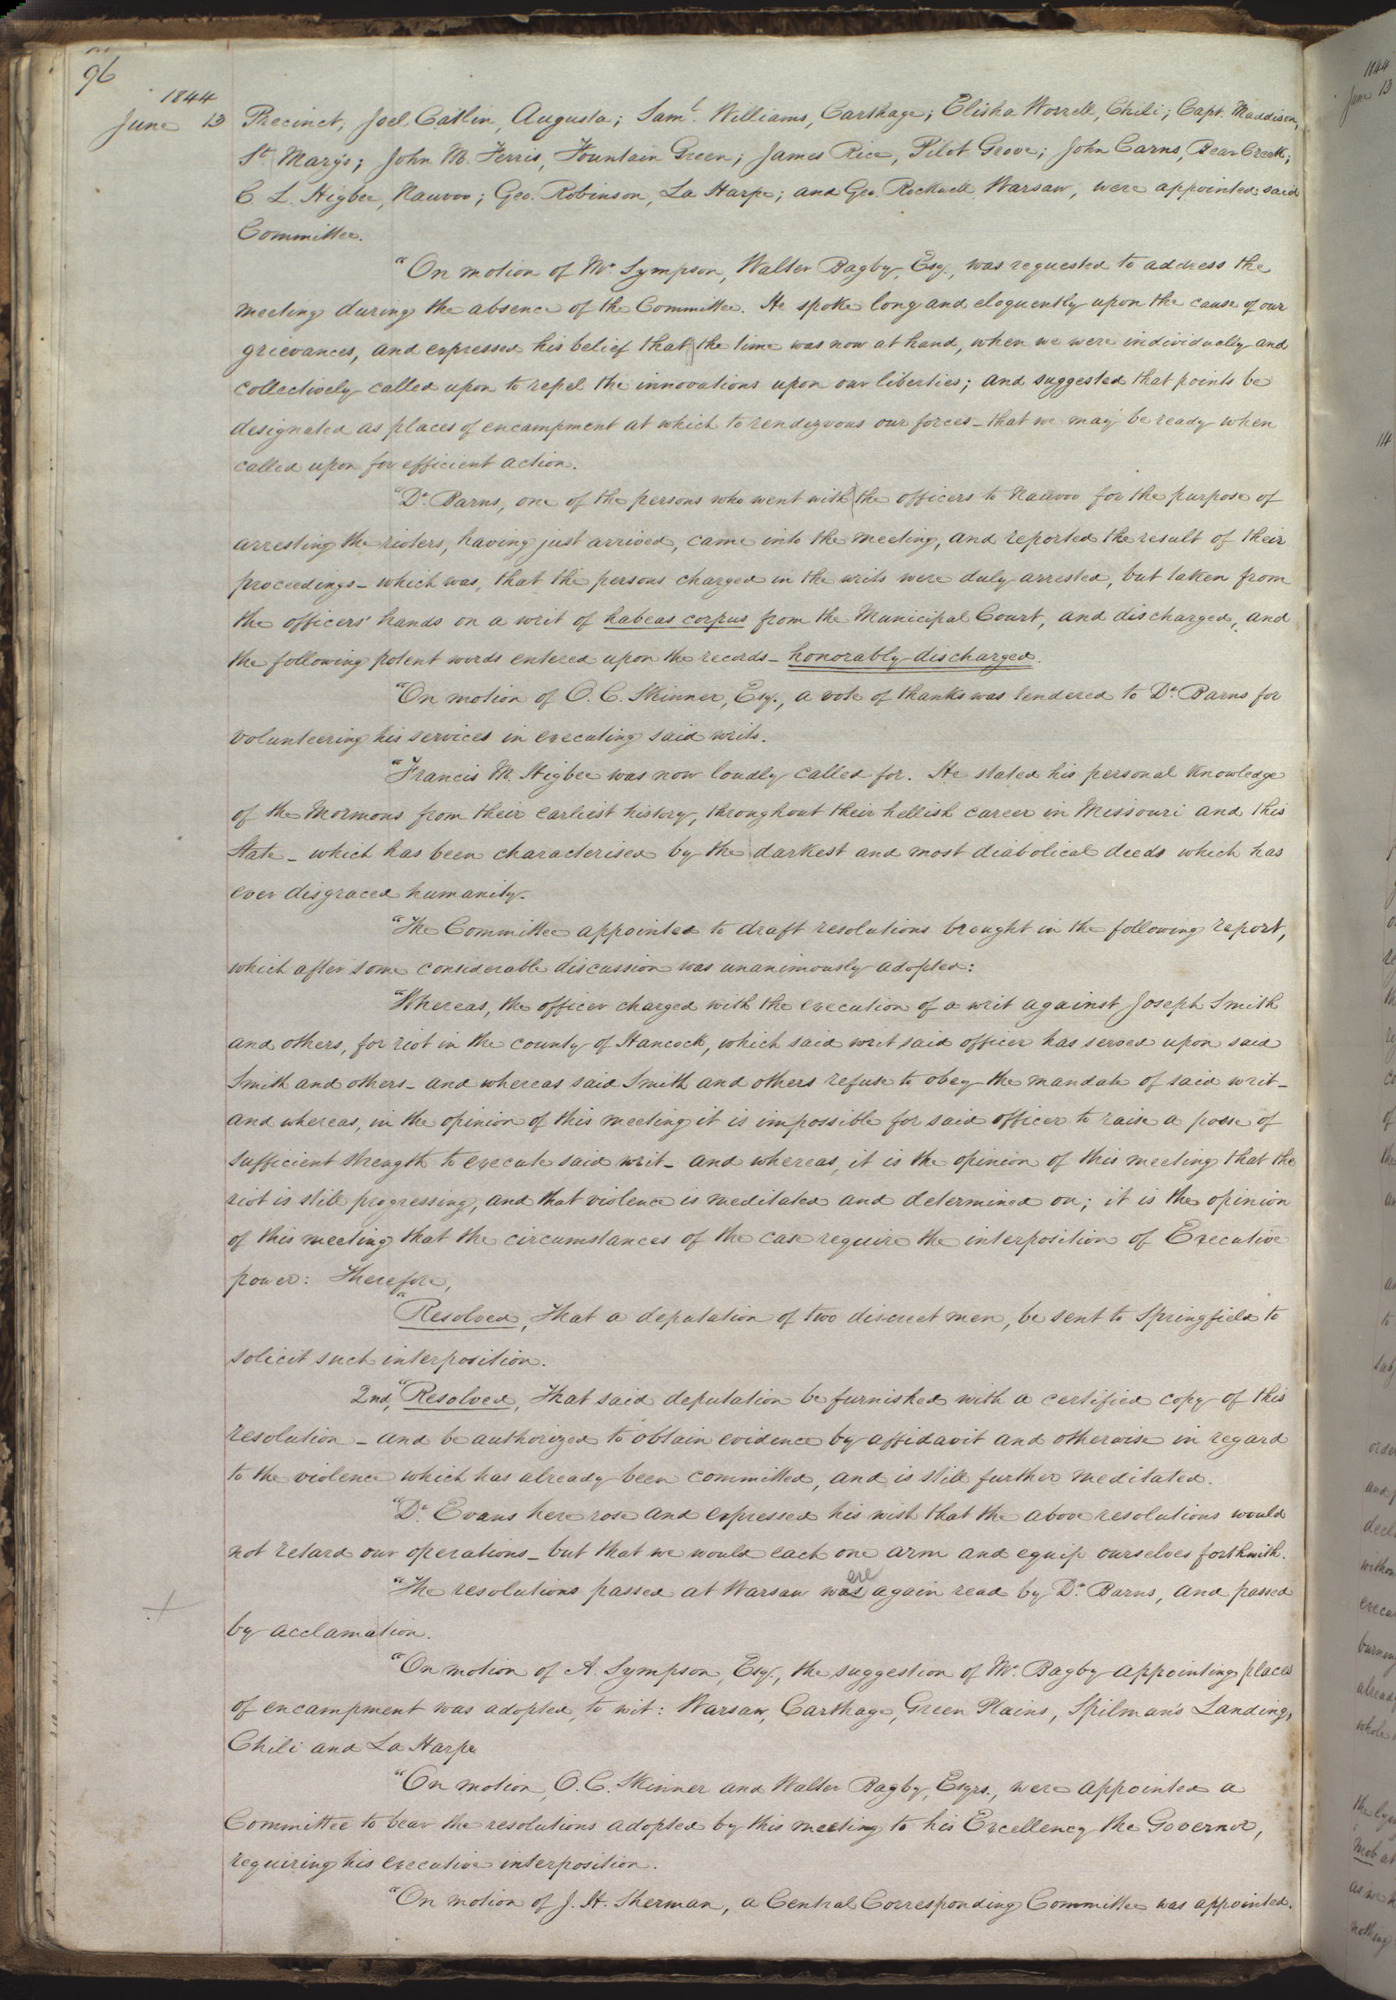 96
1844
June 13
Precinct, Joel Catlin, Augusta; Saml. Williams, Carthage; Elisha Worrell, Chili; Capt. Maddison,
St. Mary's; John M. Ferris, Fountain Green; James Rice, Pilot Grove; John Carns, Bear Creek;
C. L. Higbee, Nauvoo; Geo. Robinson, La Harpe; and Geo. Rockwell, Warsaw, were appointed said
Committee.
"On motion of Mr. Sympson, Walter Bagby, Esq., was requested to address the
meeting during the absence of the Committee. He spoke long and eloquently upon the cause of our
grievances, and expressed his belief that the time was now at hand, when we were individually and
collectively called upon to repel the innovations upon our liberties; and suggested that points be
designated as places of encampment at which to rendezvous our forces – that we may be ready when
called upon for efficient action.
"Dr. Barns, one of the persons who went with the officers to Nauvoo for the purpose of
arresting the rioters, having just arrived, came into the meeting, and reported the result of their
proceedings – which was, that the persons charged in the writs were duly arrested, but taken from
the officers' hands on a writ of habeas corpus from the Municipal Court, and discharged, and
the following potent words entered upon the records – honorably discharged.
"On motion of O. C. Skinner, Esq., a vote of thanks was tendered to Dr. Barns for
volunteering his services in executing said writs.
"Francis M. Higbee was now loudly called for. He stated his personal knowledge
of the Mormons from their earliest history, throughout their hellish career in Missouri and this
State – which has been characterised by the darkest and most diabolical deeds which has
ever disgraced humanity.
"The Committee appointed to draft resolutions brought in the following report,
which after some considerable discussion was unanimously adopted:
"Whereas, the officer charged with the execution of a writ against Joseph Smith
and others, for riot in the county of Hancock, which said writ said officer has served upon said
Smith and others – and whereas said Smith and others refuse to obey the mandate of said writ –
and whereas, in the opinion of this meeting it is impossible for said officer to raise a posse of
sufficient strength to execute said writ – and whereas, it is the opinion of this meeting that the
riot is still progressing, and that violence is meditated and determined on; it is the opinion
of this meeting that the circumstances of the case require the interposition of Executive
power: Therefore,
"Resolved, That a deputation of two discreet men, be sent to Springfield to
solicit such interposition.
2nd, "Resolved, That said deputation be furnished with a certified copy of this
resolution – and be authorized to obtain evidence by affidavit and otherwise in regard
to the violence which has already been committed, and is still further meditated.
"Dr. Evans here rose and expressed his wish that the above resolutions would
not retard our operations – but that we would each one arm and equip ourselves forthwith.
ere
"The resolutions passed at Warsaw was again read by Dr. Barns, and passed
by acclamation.
"On motion of A. Sympson, Esq., the suggestion of Mr. Bagby appointing places
of encampment was adopted, to wit: Warsaw, Carthage, Green Plains, Spilman's Landing,
Chili and La Harpe
"On motion, O. C. Skinner and Walter Bagby, Esqrs., were appointed a
Committee to bear the resolutions adopted by this meeting to his Excellency the Governor,
requiring his executive interposition.
"On motion of J. H. Sherman, a Central Corresponding Committee was appointed.
1844
June 13